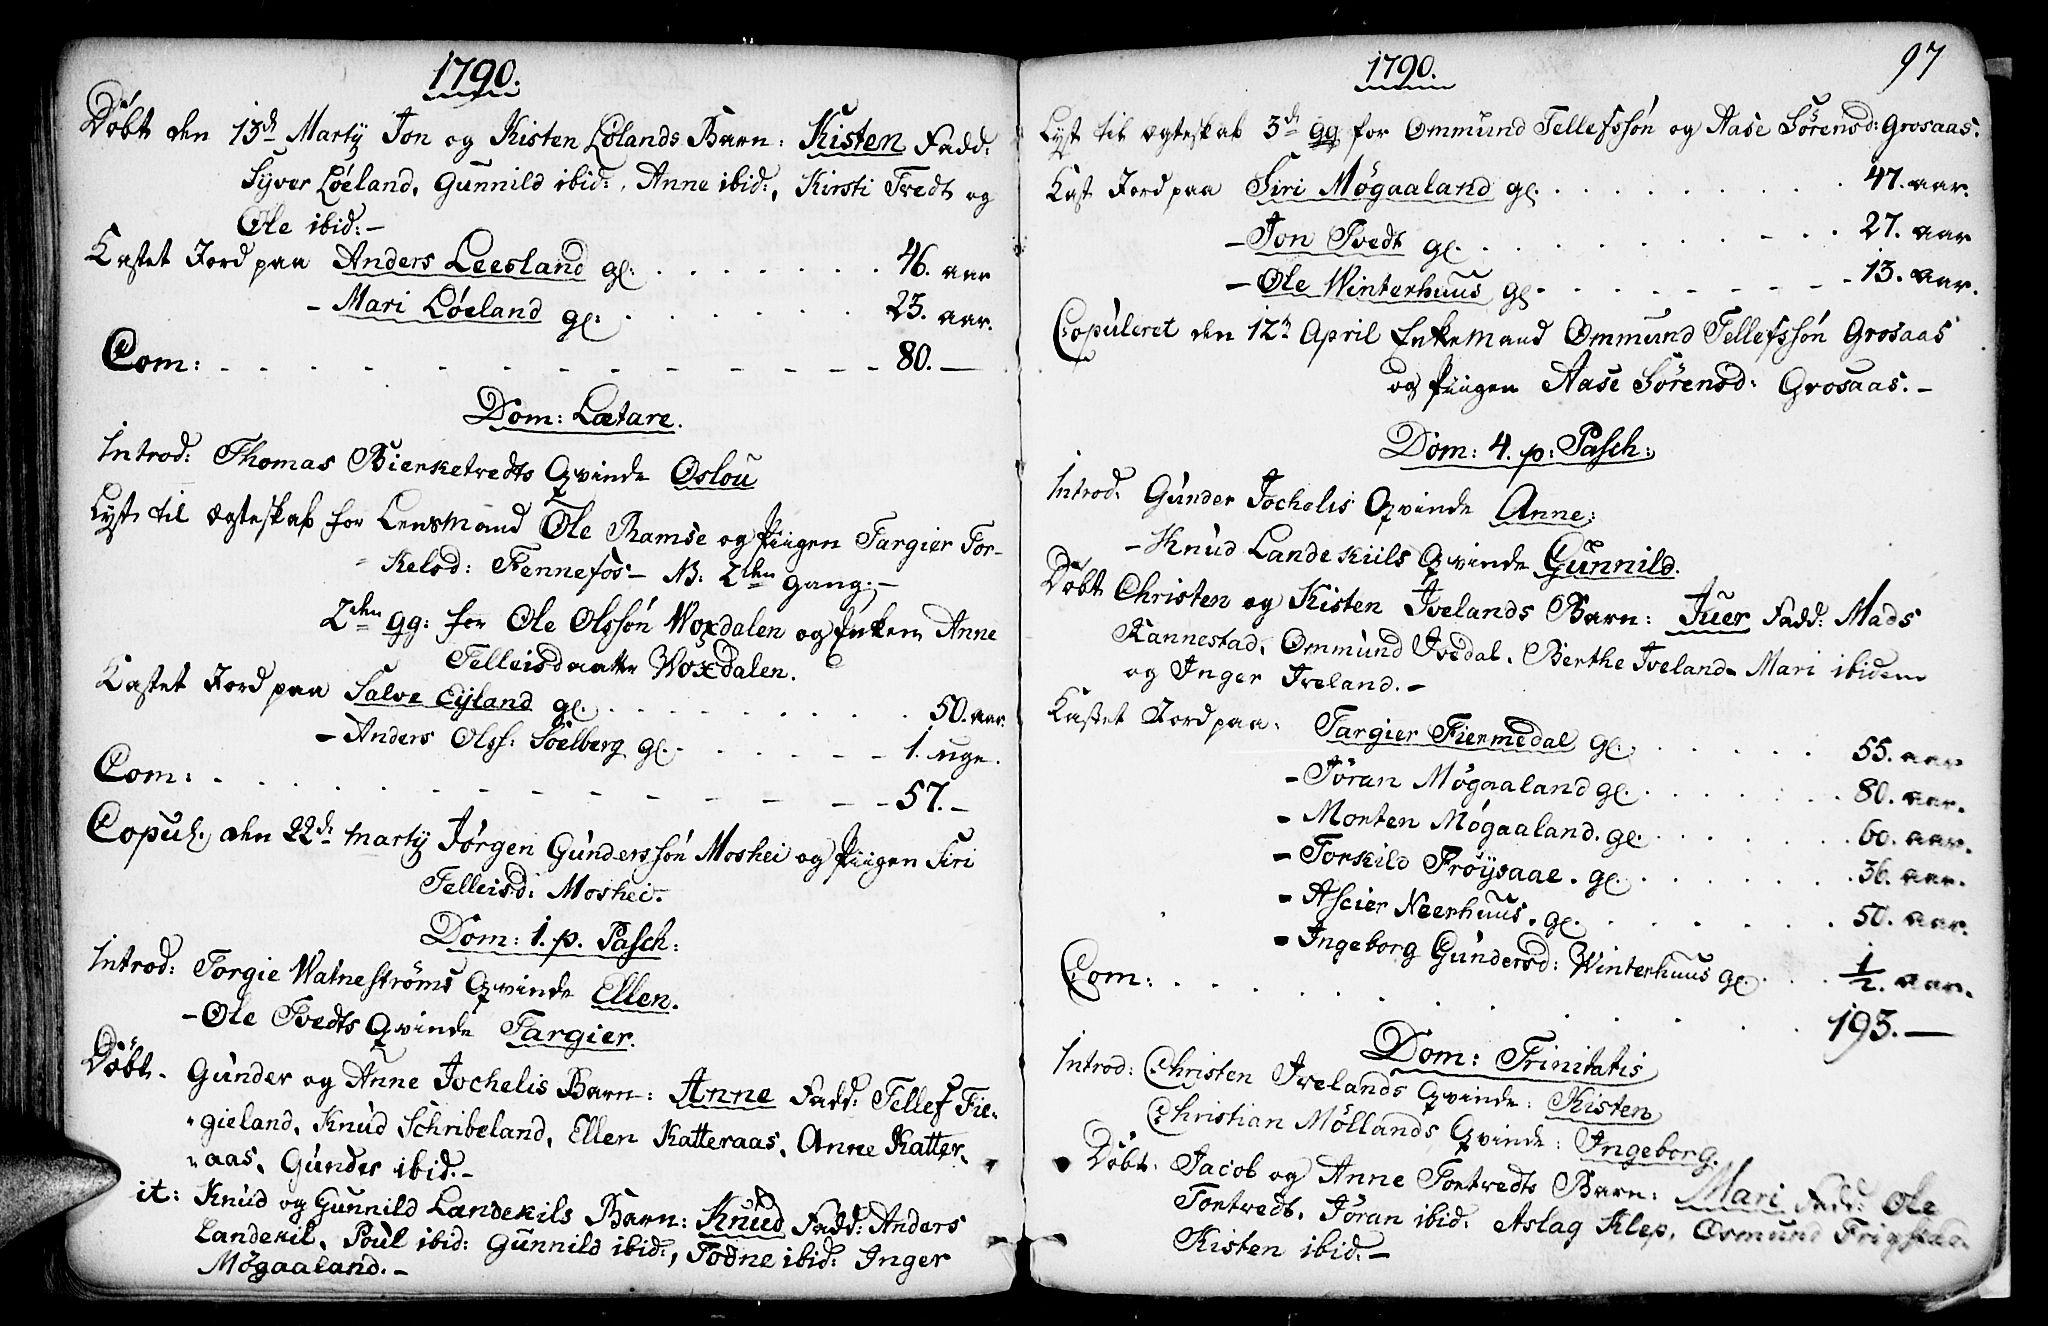 1790.
Döbt den 13de Martÿ Jon og Kisten Lölands Barn: Kisten Fadd:
Syver Löeland, Gunnild ibid:, Anne ibid:, Kirsti Tvedt og
Ole ibid:-
Kastet Jord paa Anders Leesland gl. 46. aar
- Mari Löeland gl: 23. aar.
Com: 80.-
Dom: Lætare.
Introd: Thomas Bierketvedts Qvinde Oslou
Lyst til Ægteskab for Lensmand Ole Ramse og Piigen Targier Tor-
kelsd: Fennefos- NB: 2den Gang.-
2den gg: for Ole Olssön Woxdalen og Enken Anne
Telleisdaatter Woxdalen.
Kastet Jord paa Salve Eyland gl. 50. aar.
- Anders Olss: Soelberg gl. 1. uge.
Com: 57.-
Copul. den 22de Martÿ Jörgen Gunderssön Moshei og Piigen Siri
Telleisd: Moshei-
Dom: 1. p. Pasch:
Introd: Torgie Watneströms Qvinde Ellen.
- Ole Tvedts Qvinde Targier.
Döbt. Gunder og Anne Jochelis Barn: Anne Fadd: Tellef Fie-
gieland, Knud Schribeland, Ellen Katteraas, Anne Katter-
aas, Gunder ibid.-
it: Knud og Gunnild Landekils Barn: Knud Fadd: Anders
Landekil, Poul ibid: Gunnild ibid:, Todne ibid: Inger
Mögaaland.-
1790. 97
Lyst til Ægteskab 3de gg for Ommund Tellefssön og Aase Sörensd: Grosaas.
Kast Jord paa Siri Mögaaland gl. 47. aar.
- Jon Tvedt gl. 27. aar
- Ole Winterhuus gl. 13. aar.
Copuleret den 12te April Enkemand Ommund Tellefssön Grosaas
og Piigen Aase Sörensd: Grosaas.-
Dom: 4. p: Pasch:
Introd: Gunder Jochelis Qvinde Anne:
- Knud Landekiils Qvinde Gunnild.
Döbt Christen og Kisten Ivelands Barn: Juer Fadd: Mads
Kannestad, Ommund Ivedal, Berthe Iveland- Mari ibidem
og Inger Iveland.-
Kastet Jord paa: Targier Fiermedal gl. 55. aar
- Jöran Mögaaland gl. 80. aar.
- Morten Mögaaland. gl. 60. aar.
- Torkild Fröysaae. gl. 36. aar.
- Ascier Neerhuus. gl. 50. aar.
- Ingeborg Gundersd: Winterhuus gl. 1/2. aar.
Com: 193.-
Dom: Trinitatis
Introd: Christen Ivelands Qvinde: Kisten
Christian Möllands Qvinde: Ingeborg.
Döbt. Jacob og Anne Tortvedts Barn: Mari Fadd: Ole
Tortvedt, Jöran ibid: Aslag Klep, Osmund
Kisten ibid.-